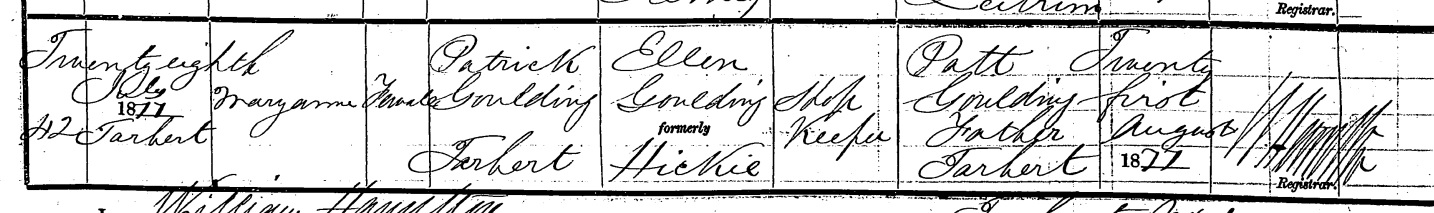 Leitrim
Registrar.
Twenty eighth
July
1877
42 Tarbert
Maryanne
Female
Patrick
Goulding
Tarbert
Ellen
Goulding
formerly
Hickie
Shop
Keeper
Patt
Goulding
Father
Tarbert
Twenty
first
August
1877
Registrar.
William Hamilton